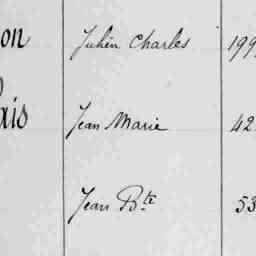 on Julien Charles 199
ais Jean Marie 42
Jean Bte 53